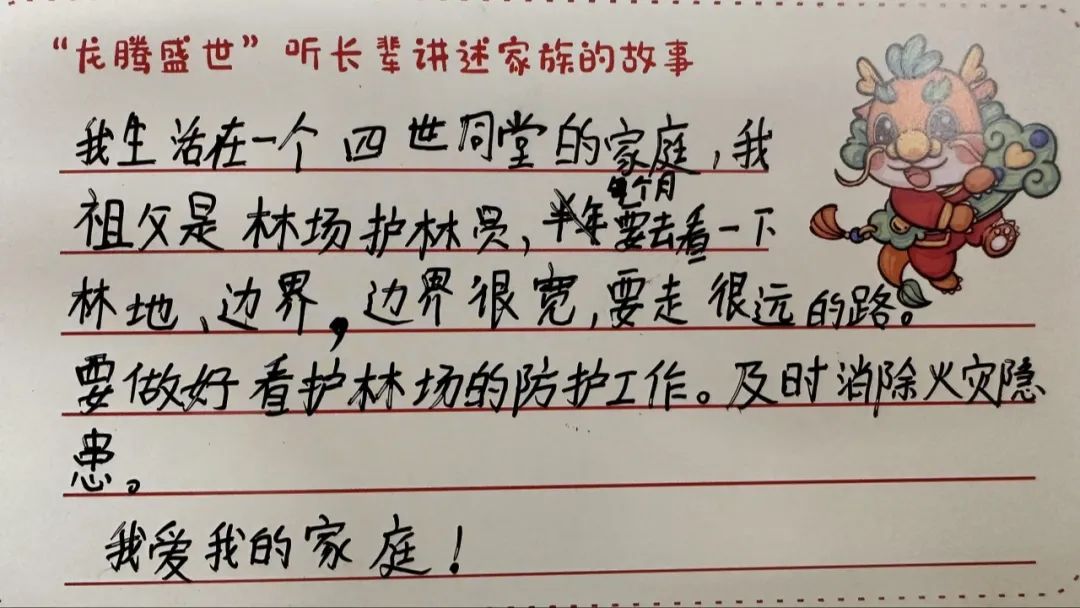 “龙腾盛世”听长辈讲述家族的故事
我生活在一个四世同堂的家庭，我
祖父是林场护林员，每个月要去看一下
林地、边界，边界很宽，要走很远的路。
要做好看护林场的防护工作。及时消除火灾隐
患。
我爱我的家庭！